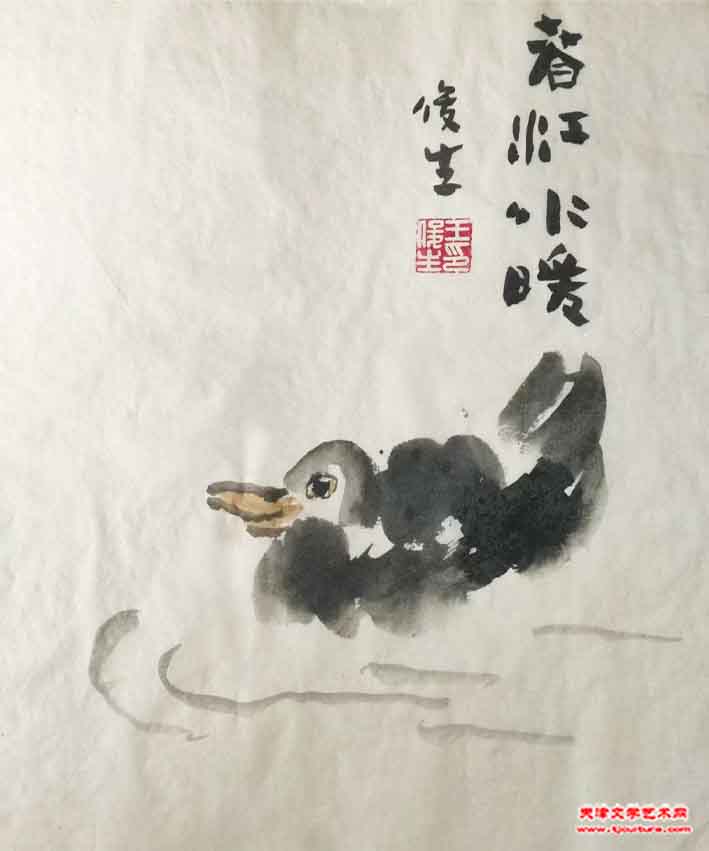 春江水暖
俊生
王印
俊生
天津文学艺术网
www.tjculture.com